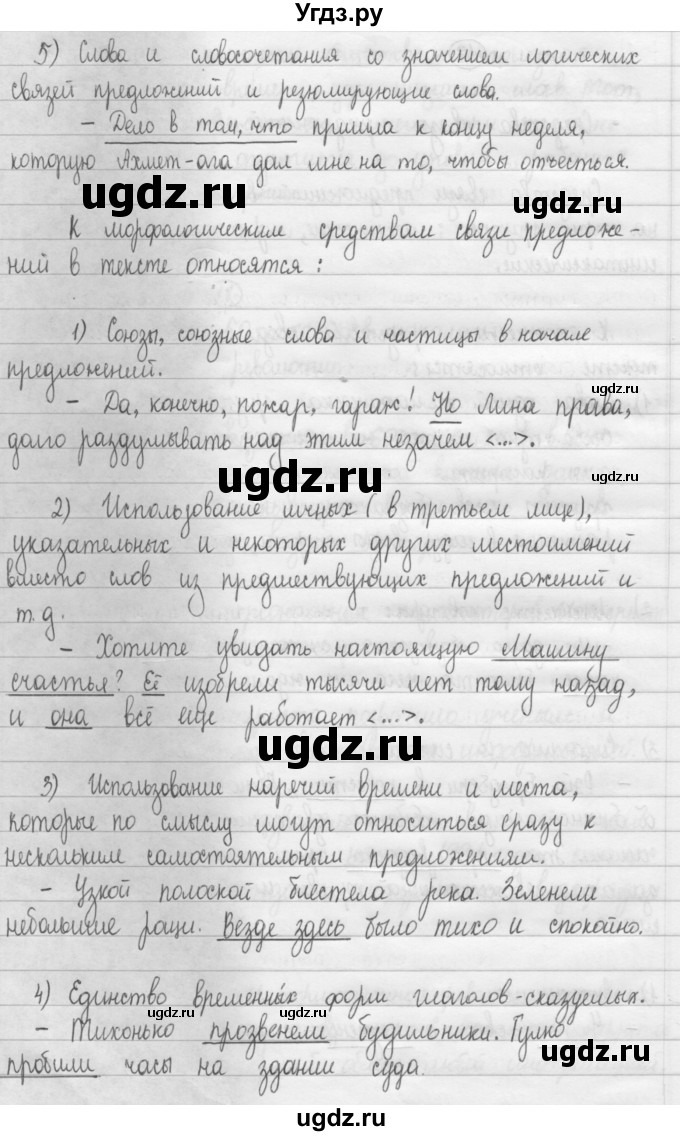 Угдз.ру
5) Слова и словосочетания со значением логических
связей предложений и резюмирующие слова.
- Дело в том, что пришла к концу неделя,
которую Ахмет-ага дал мне на то, чтобы отъесться.
ugdz.ru
ugdz.ru
К морфологическим средствам связи предложе-
ний в тексте относятся:
1) Союзы, союзные слова и частицы в начале
предложений.
ugdz.ru
- Да, конечно, пожар, гараж! Но Лина права,
долго раздумывать над этим незачем <...>.
ugdz.ru
2) Использование личных (в третьем лице),
указательных и некоторых других местоимений
вместо слов из предшествующих предложений и
т.д.
- Хотите увидать настоящую Машину
счастья? Её изобрели тысячи лет тому назад,
и она всё еще работает <...>.
ugdz.ru
ugdz.ru
3) Использование наречий времени и места,
которые по смыслу могут относиться сразу к
нескольким самостоятельным предложениям.
- Узкой полоской блестела река. Зеленели
небольшие рощи. Везде здесь было тихо и спокойно.
4) Единство временных форм глаголов-сказуемых.
ugdz.ru
- Тихонько прозвенели будильники. Гулко
ugdz.ru
пробили часы на здании суда.
ugdz.ru